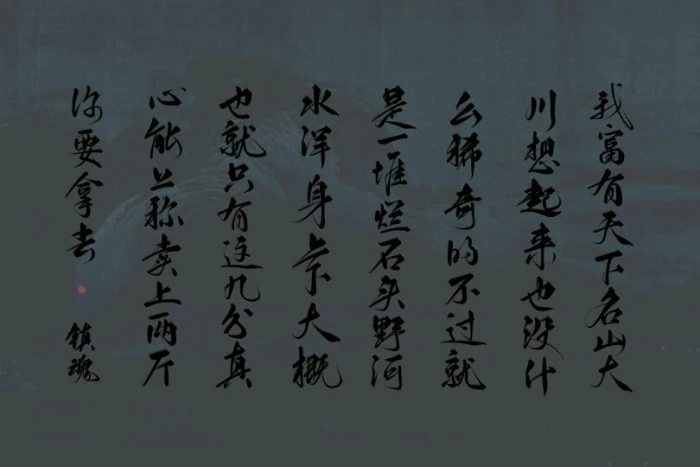 我富有天下名山大
川想起来也没什
么稀奇的不过就
是一堆烂石头野河
水浑身上下大概
也就只有这几分真
心能上称卖上两斤
你要拿去
镇魂